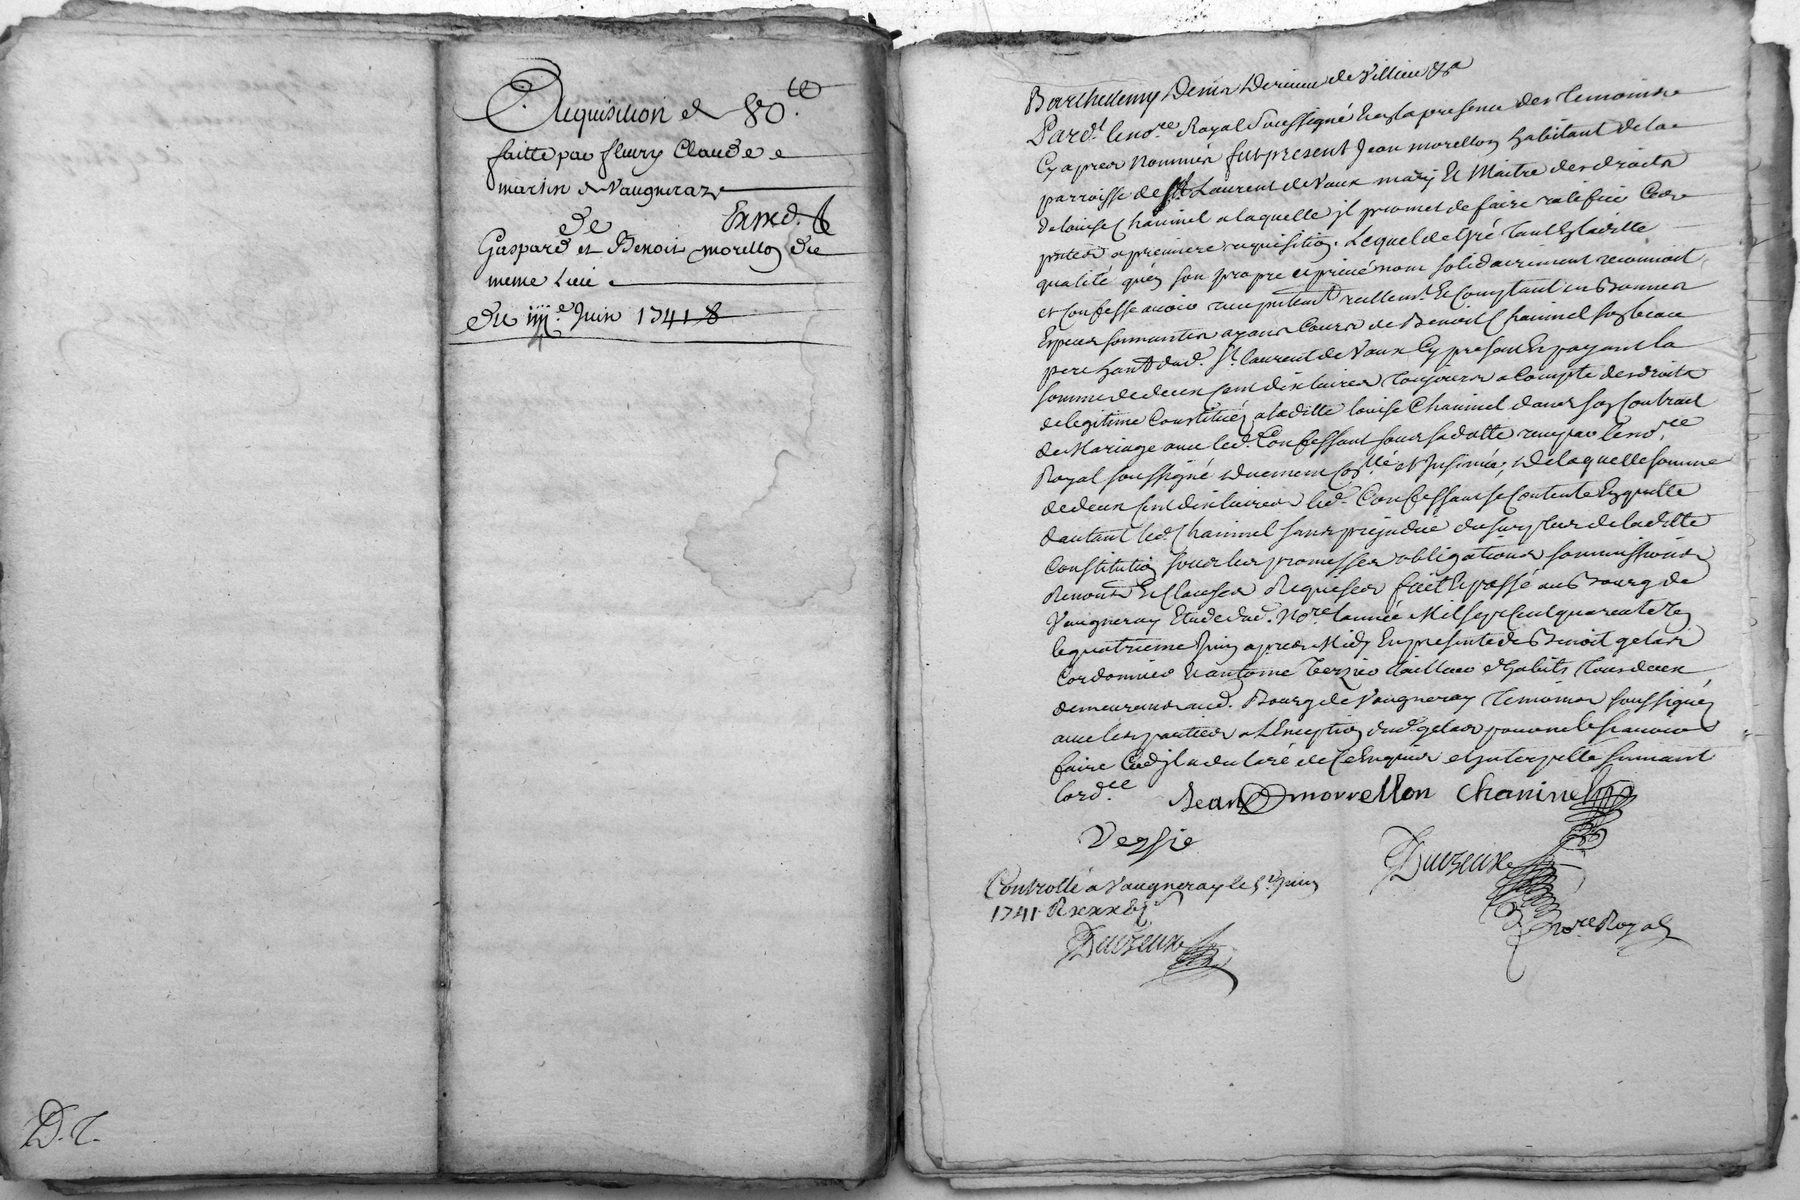 Acquisition de 80.<sup>tt</sup>
faitte par fleury Claude
martin de Vaugneray
Exped.
de
Gaspard et Benoit morellon du
meme Lieu
du iiii.e Juin 1741
D. T.
Barthellemy Denis
Pardt. le nore. Royal Soussigné En la presence des Temoins
Cy apres Nommés fut present Jean morellon habitant de la
parroisse de St Laurent de Vaux mary Et Maitre des droits
de louise Chaninel a laquelle il promet de faire ratifier Ces
presentes a premiere requisition. Lequel de Gré tant En laditte
qualité qu'en son propre et privé nom solidairement reconnoit
et Confesse avoir recu presentement reellemt. Et Comptant en Bonnes
Especes sonnantes ayans Cours de Benoit Chaninel son beau
pere habt dud. St. laurent de Vaux Cy present En payant la
somme de deux Cent dix livres Toujours a Compte des droits
de legitime Constitués a laditte louise Chaninel dans son Contrait
de Mariage avec led. Confessant sous sa datte recu par le nore.
Royal soussigné duement Conllé et Insinué, de laquelle somme
de deux Cent dix livres led. Confessant se Contente En quitte
d'autant led. Chaninel sans prejudice du surplus de laditte
Constitution sous les promesses obligations soumissions
Renontns Et Clauses Requises fait Et passé au Bourg de
Vaugneray Etude dud. Nore. l'année Mil sept Cent quarante Un
le quatrieme Juin apres Midy En presence de Benoit gelas
Cordonnier Et antoine Terzie tailleur d'habits Tous deux
demeurants aud. Bourg de Vaugneray Temoins soussignés
avec les parties a L'Exception dud. gelas pour ne le scavoir
faire Ce qu'il a declaré de Ce Enquis et Interpellé suivant
lord.ce
Jean morrellon Chaninel
Verzie
Duvzeuxe
Controllé a Vaugneray le 5e. Juin
1741. R xxx
Duvzeuxe
nore Royal